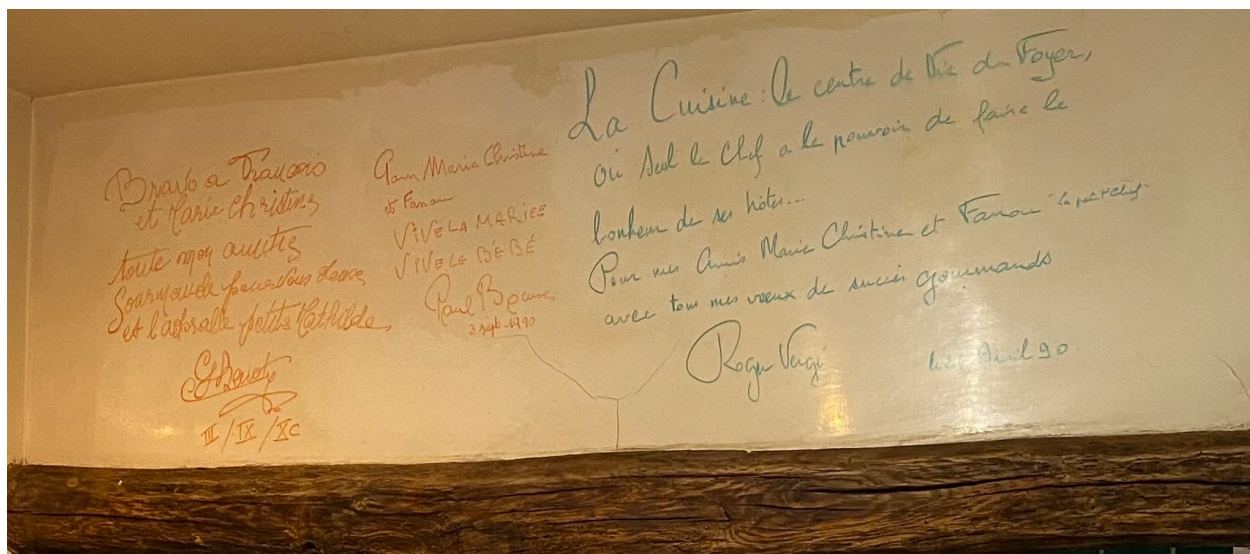 Bravo a François
et Marie Christine
toute mon amitié
Gourmande pour vous deux
et l'adorable petite Mathilde
III / IX / XC
Pour Marie Christine
et Fanou
VIVE LA MARIEE
VIVE LE BÉBÉ
Paul Bocuse
3 sept-1990
La Cuisine : le centre de Vie du Foyer,
où seul le Chef a le pouvoir de faire le
bonheur de ses hôtes...
Pour mes Amis Marie Christine et Fanou "le petit chef"
avec tous mes vœux de succès gourmands
Roger Vergé
Avril 90